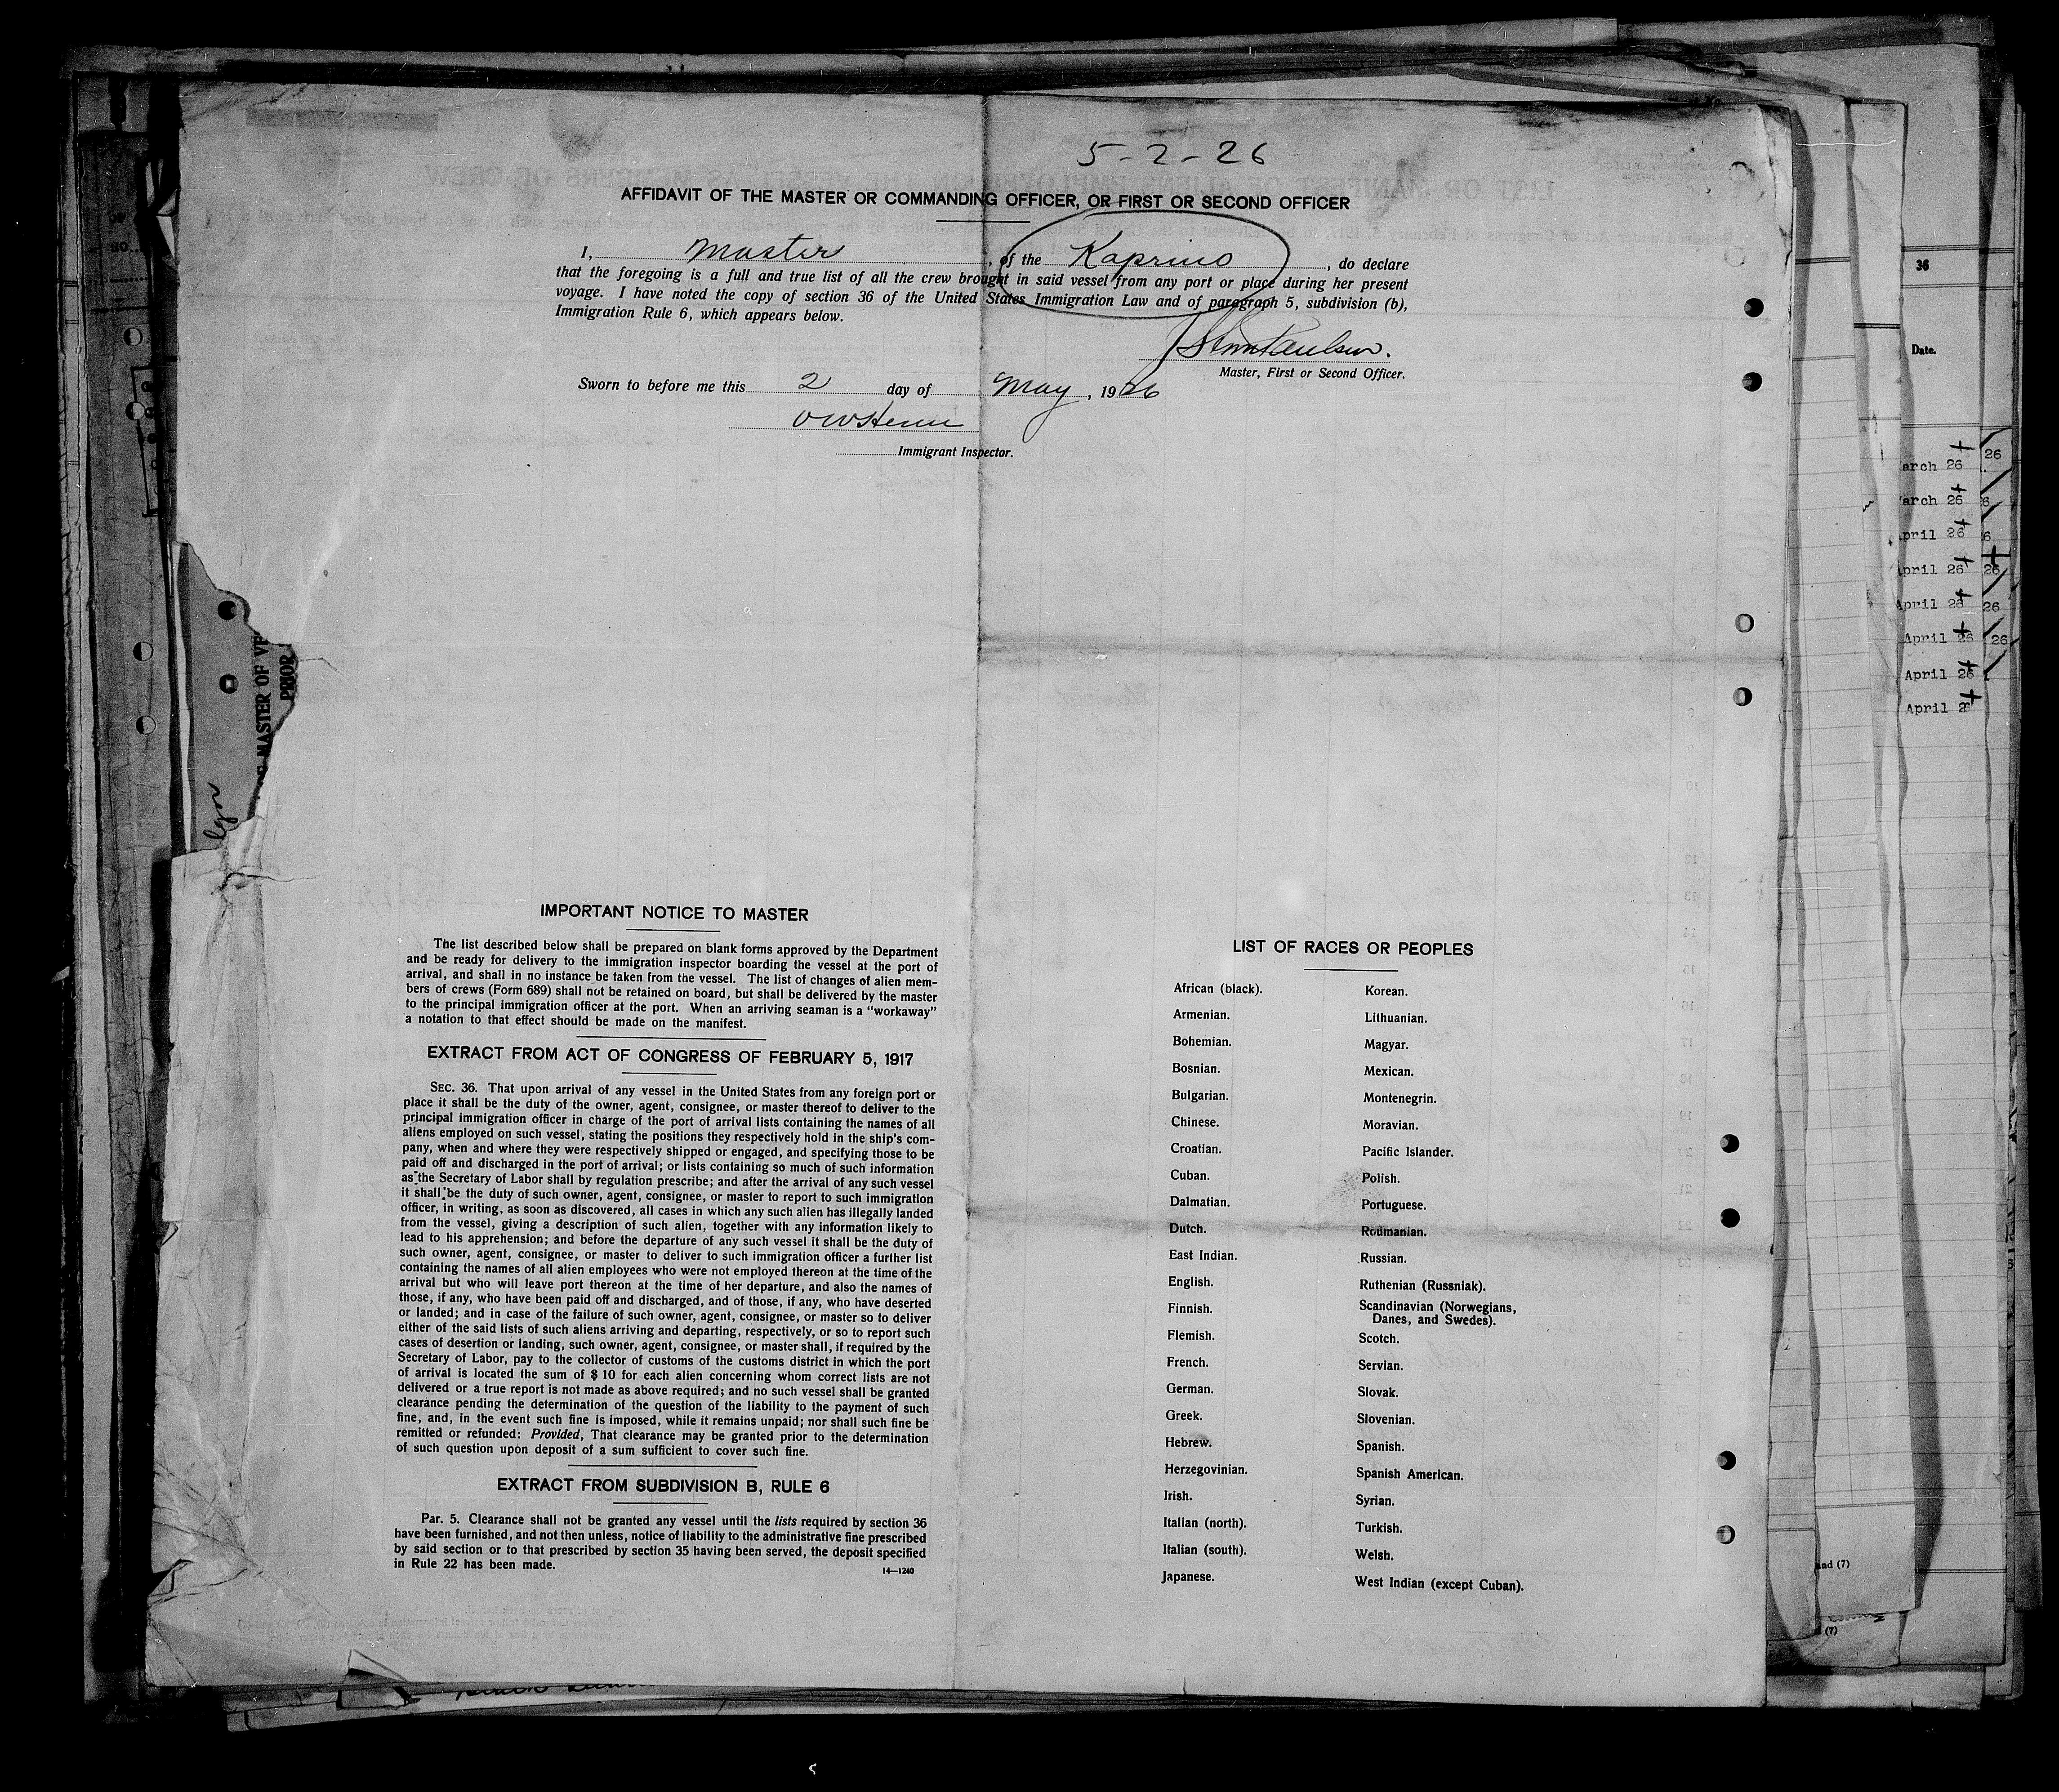 5-2-26
AFFIDAVIT OF THE MASTER OR COMMANDING OFFICER, OR FIRST OR SECOND OFFICER
I, Master, of the Kaprino, do declare
that the foregoing is a full and true list of all the crew brought in said vessel from any port or place during her present
voyage. I have noted the copy of section 36 of the United States Immigration Law and of paragraph 5, subdivision (b),
Immigration Rule 6, which appears below.
Paulsen.
Master, First or Second Officer.
Sworn to before me this 2 day of May, 1926
Immigrant Inspector.
IMPORTANT NOTICE TO MASTER
The list described below shall be prepared on blank forms approved by the Department
and be ready for delivery to the immigration inspector boarding the vessel at the port of
arrival, and shall in no instance be taken from the vessel. The list of changes of alien mem-
bers of crews (Form 689) shall not be retained on board, but shall be delivered by the master
to the principal immigration officer at the port. When an arriving seaman is a "workaway"
a notation to that effect should be made on the manifest.
EXTRACT FROM ACT OF CONGRESS OF FEBRUARY 5, 1917
SEC. 36. That upon arrival of any vessel in the United States from any foreign port or
place it shall be the duty of the owner, agent, consignee, or master thereof to deliver to the
principal immigration officer in charge of the port of arrival lists containing the names of all
aliens employed on such vessel, stating the positions they respectively hold in the ship's com-
pany, when and where they were respectively shipped or engaged, and specifying those to be
paid off and discharged in the port of arrival; or lists containing so much of such information
as the Secretary of Labor shall by regulation prescribe; and after the arrival of any such vessel
it shall be the duty of such owner, agent, consignee, or master to report to such immigration
officer, in writing, as soon as discovered, all cases in which any such alien has illegally landed
from the vessel, giving a description of such alien, together with any information likely to
lead to his apprehension; and before the departure of any such vessel it shall be the duty of
such owner, agent, consignee, or master to deliver to such immigration officer a further list
containing the names of all alien employees who were not employed thereon at the time of the
arrival but who will leave port thereon at the time of her departure, and also the names of
those, if any, who have been paid off and discharged, and of those, if any, who have deserted
or landed; and in case of the failure of such owner, agent, consignee, or master so to deliver
either of the said lists of such aliens arriving and departing, respectively, or so to report such
cases of desertion or landing, such owner, agent, consignee, or master shall, if required by the
Secretary of Labor, pay to the collector of customs of the customs district in which the port
of arrival is located the sum of $10 for each alien concerning whom correct lists are not
delivered or a true report is not made as above required; and no such vessel shall be granted
clearance pending the determination of the question of the liability to the payment of such
fine, and, in the event such fine is imposed, while it remains unpaid; nor shall such fine be
remitted or refunded: Provided, That clearance may be granted prior to the determination
of such question upon deposit of a sum sufficient to cover such fine.
EXTRACT FROM SUBDIVISION B, RULE 6
Par. 5. Clearance shall not be granted any vessel until the lists required by section 36
have been furnished, and not then unless, notice of liability to the administrative fine prescribed
by said section or to that prescribed by section 35 having been served, the deposit specified
in Rule 22 has been made.
14—1240
LIST OF RACES OR PEOPLES
African (black).
Armenian.
Bohemian.
Bosnian.
Bulgarian.
Chinese.
Croatian.
Cuban.
Dalmatian.
Dutch.
East Indian.
English.
Finnish.
Flemish.
French.
German.
Greek.
Hebrew.
Herzegovinian.
Irish.
Italian (north).
Italian (south).
Japanese.
Korean.
Lithuanian.
Magyar.
Mexican.
Montenegrin.
Moravian.
Pacific Islander.
Polish.
Portuguese.
Roumanian.
Russian.
Ruthenian (Russniak).
Scandinavian (Norwegians,
Danes, and Swedes).
Scotch.
Servian.
Slovak.
Slovenian.
Spanish.
Spanish American.
Syrian.
Turkish.
Welsh.
West Indian (except Cuban).
MASTER OF
PRIOR
36
Date.
arch 26
arch 26
pril 26
pril 26
April 26
April 26
April 26
April 2
26
6
6
26
26
26
and (7)
(7)